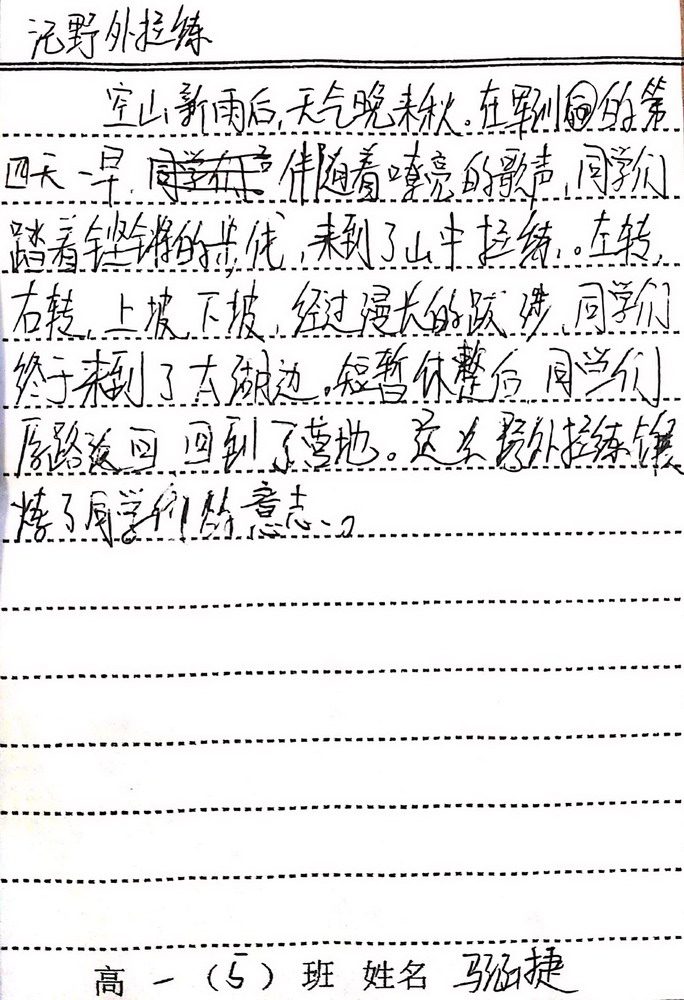 记野外拉练
空山新雨后,天气晚来秋。在军训的第
四天一早,伴随着嘹亮的歌声,同学们
踏着铿锵的步伐,来到了山中拉练。左转,
右转,上坡,下坡,经过漫长的跋涉,同学们
终于来到了太湖边。短暂休整后,同学们
原路返回,回到了营地。这次野外拉练锻
炼了同学们的意志。
高一(5)班 姓名 马涵捷